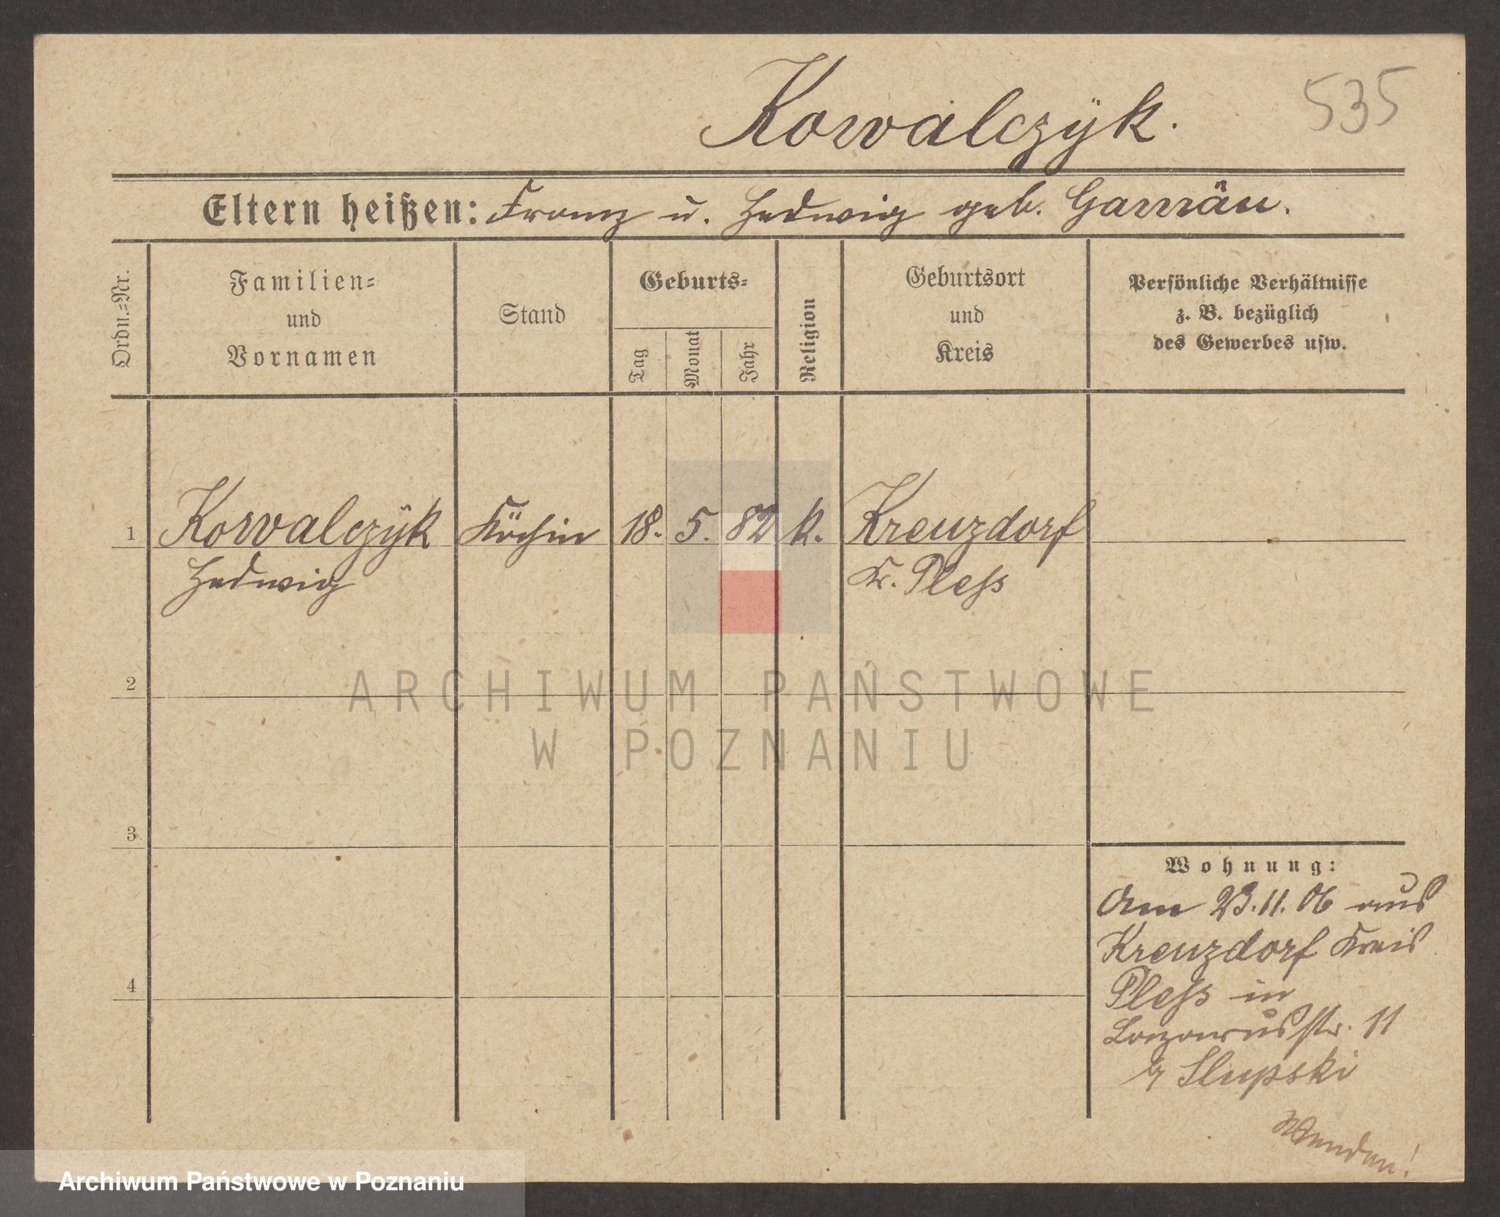 Kowalczÿk.
535
Eltern heißen: Franz u. Hedwig geb.
Ordn.=Nr.
Familien=
und
Vornamen
Stand
Geburts=
Tag
Monat
Jahr
Religion
Geburtsort
und
Kreis
Persönliche Verhältnisse
z. B. bezüglich
des Gewerbes usw.
1
Kowalczÿk
Hedwig
Köchin
18.
5.
82
k.
Kreuzdorf
Kr. Pleß
2
3
4
Wohnung:
Am 23.11.06 aus
Kreuzdorf Kreis
Pleß in
Lazarusstr. 11
b/ Slupski
Wenden!
ARCHIWUM PAŃSTWOWE
W POZNANIU
Archiwum Państwowe w Poznaniu